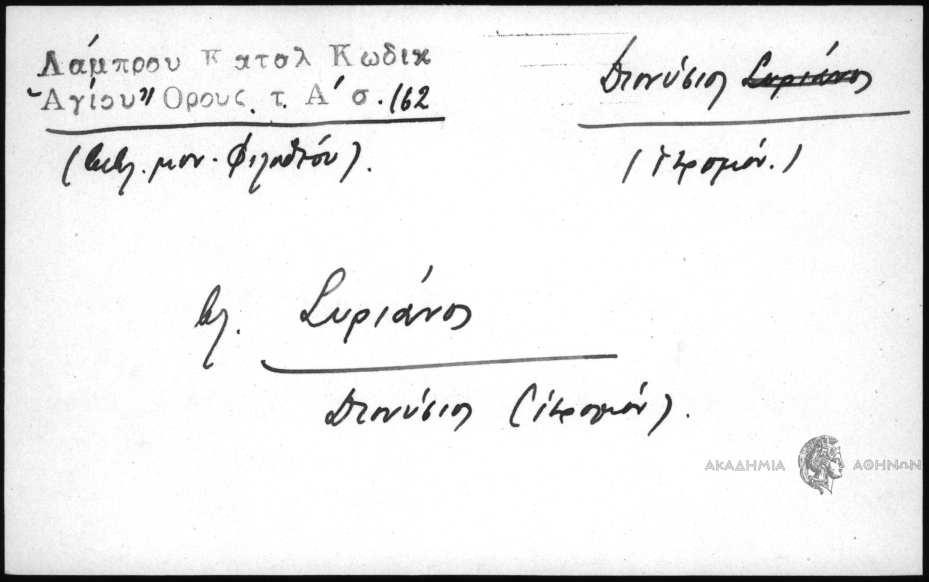 Λάμπρου Καταλ Κωδικ
Ἁγίου Ὄρους. τ. Α' σ. 162
(βιβλ. μον. Φιλοθέου).
Διονύσιος Συριάνος
(ἱερομόν.)
βλ. Συριάνος
Διονύσιος (ἱερομόν).
ΑΚΑΔΗΜΙΑ ΑΘΗΝΩΝ